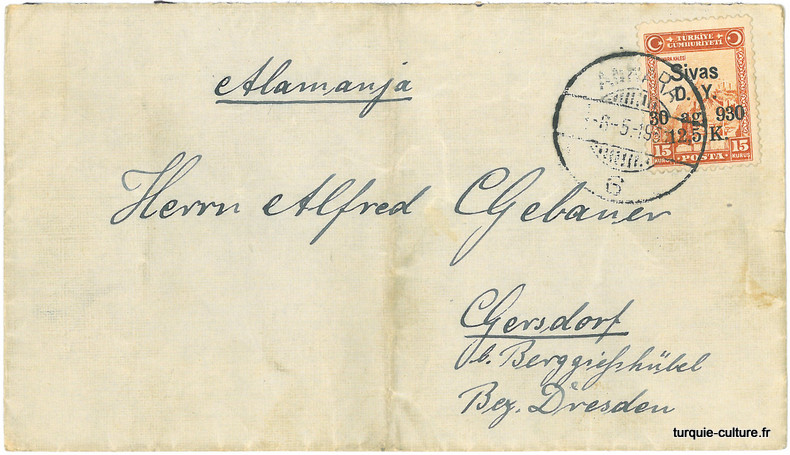 Alamanja
TÜRKİYE
CUMHURİYETİ
Sivas
D. Y.
30 ag. 930
12.5 K.
15 POSTA 15
KURUŞ KURUŞ
6
Herrn Alfred Gebauer
Gersdorf
b. Berggießhübel
Bez. Dresden
turquie-culture.fr